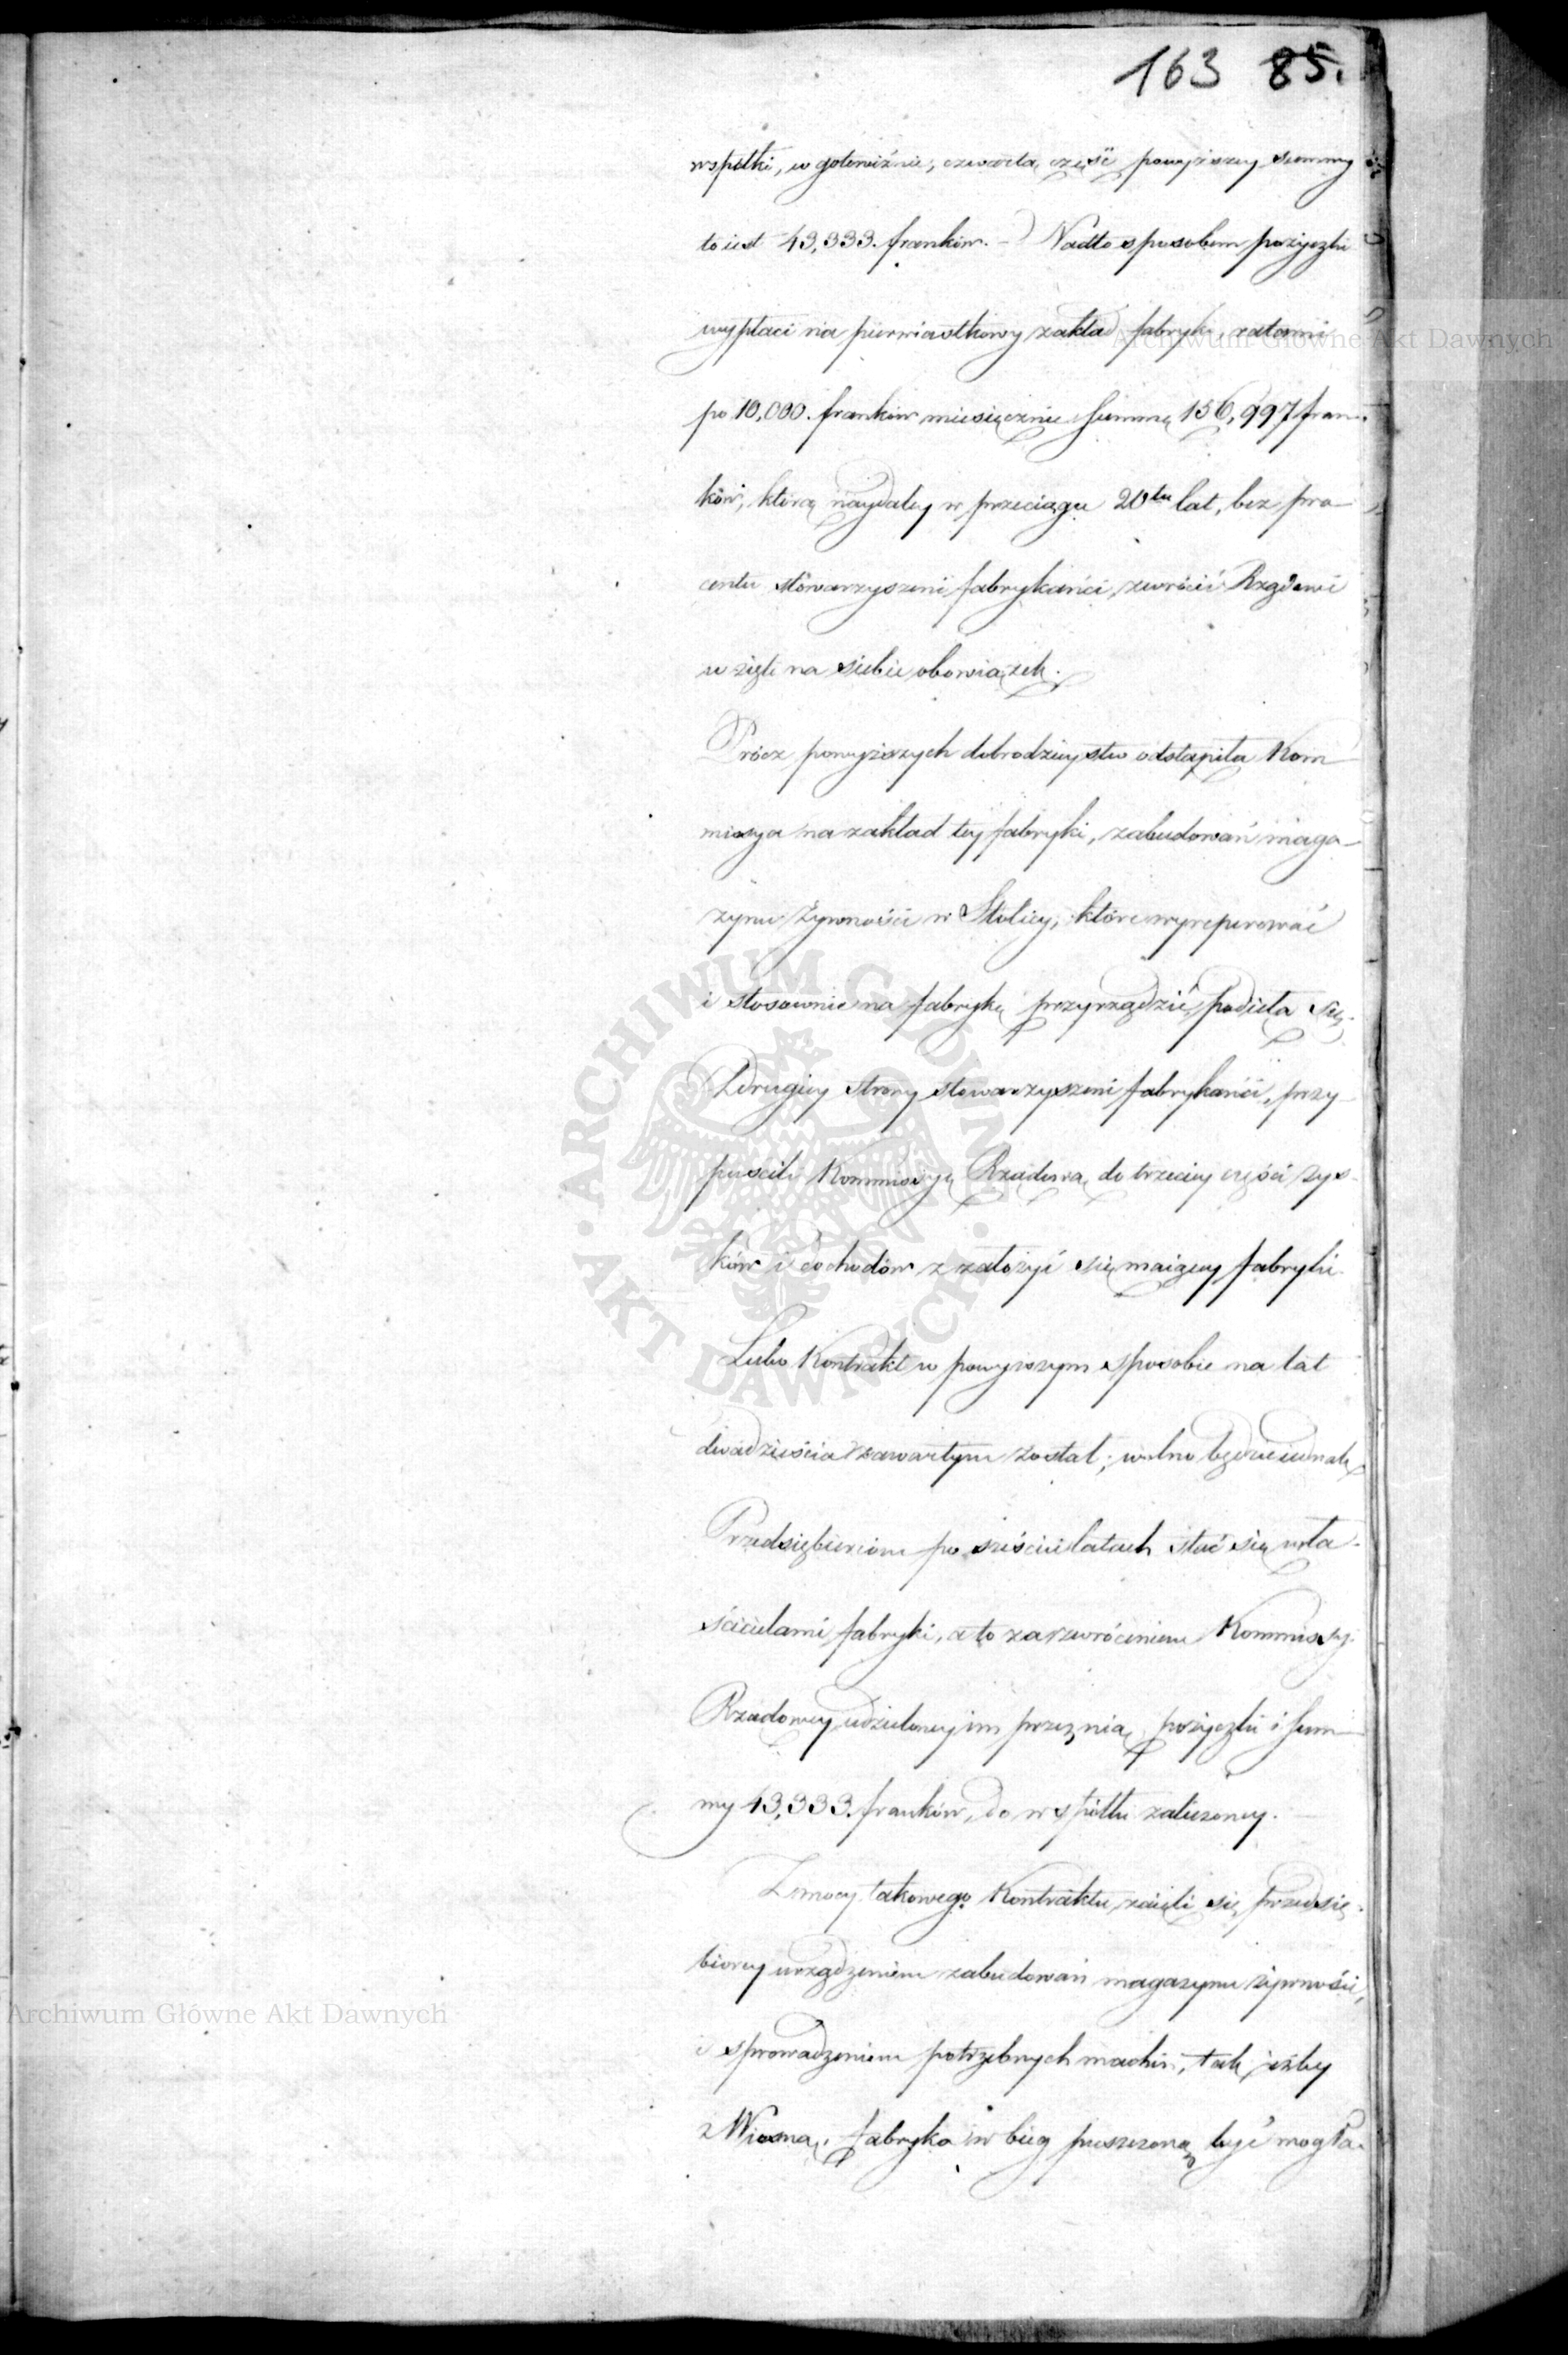 163 85.
współki, w gotowiźnie, czwartą część powyższey summy
to iest 43,333. franków. – Nadto sposobem pożyczki
wypłaci na pierwiastkowy zakład fabryki, ratami
po 10,000. franków miesięcznie Summę 156,997 fran-
ków, którą naydaley w przeciągu 20tu lat, bez pro-
centu stowarzyszeni fabrykańci, zwrócić Rządowi
wzięli na siebie obowiązek.
Prócz powyższych dobrodzieystw odstąpiła Kom-
missya na zakład tey fabryki, zabudowań maga-
zynu Żywności w Stolicy, które wyreperować
i stosownie na fabrykę przyrządzić, podięła się.
Z drugiey strony stowarzyszeni fabrykańci, przy-
puścili Kommissyę Rządową do trzeciey części zys-
ków i dochodów z założyć się maiącey fabryki.
Lubo Kontrakt w powyższym sposobie na lat
dwadzieścia zawartym został; wolno będzie iednak
Przedsiębiercom po sześciu latach stać się wła-
ścicielami fabryki, a to za zwróceniem Kommissyi
Rządowey udzieloney im przez nią pożyczki i Sum-
my 43,333. franków, do wspólki zaliczoney.
Z mocy takowego Kontraktu zaięli się przedsię-
biorcy urządzeniem zabudowań magazynu żywności,
i sprowadzeniem potrzebnych machin, tak iżby
z Wiosną, fabryka w bieg puszczoną być mogła.
Archiwum Główne Akt Dawnych
ARCHIWUM GŁÓWNE · AKT DAWNYCH ·
Archiwum Główne Akt Dawnych